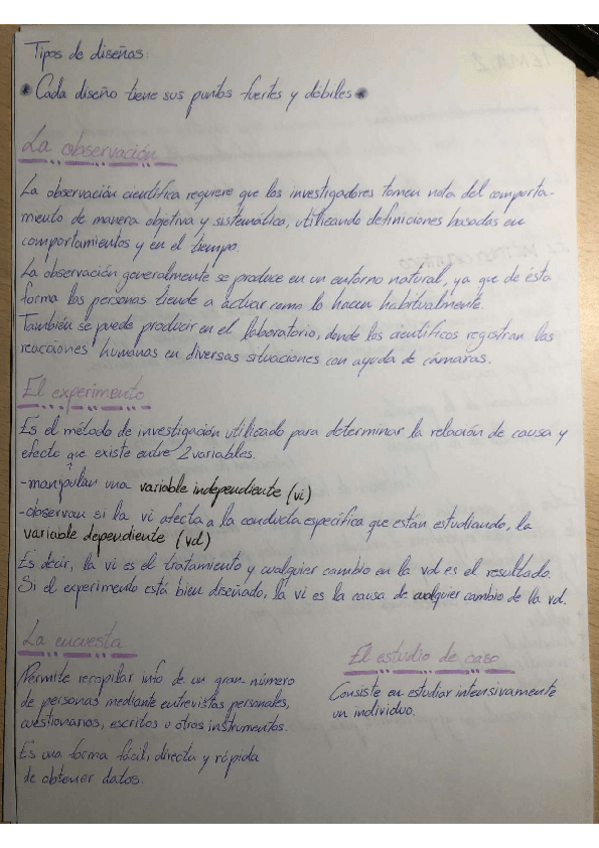 Tipos de diseños:
• Cada diseño tiene sus puntos fuertes y débiles •
La observación
La observación científica requiere que los investigadores tomen nota del comporta-
miento de manera objetiva y sistemática, utilizando definiciones basadas en
comportamientos y en el tiempo.
La observación generalmente se produce en un entorno natural, ya que de esta
forma las personas tiende a actuar como lo hacen habitualmente.
También se puede producir en el laboratorio, donde los científicos registran las
reacciones humanas en diversas situaciones con ayuda de cámaras.
El experimento
Es el método de investigación utilizado para determinar la relación de causa y
efecto que existe entre 2 variables.
-manipulan una variable independiente (vi)
-observan si la vi afecta a la conducta específica que están estudiando, la
variable dependiente (vd)
Es decir, la vi es el tratamiento y cualquier cambio en la vd es el resultado.
Si el experimento está bien diseñado, la vi es la causa de cualquier cambio de la vd.
La encuesta
Permite recopilar info de un gran número
de personas mediante entrevistas personales,
cuestionarios, escritos o otros instrumentos.
Es una forma fácil, directa y rápida
de obtener datos.
El estudio de caso
Consiste en estudiar intensivamente
un individuo.